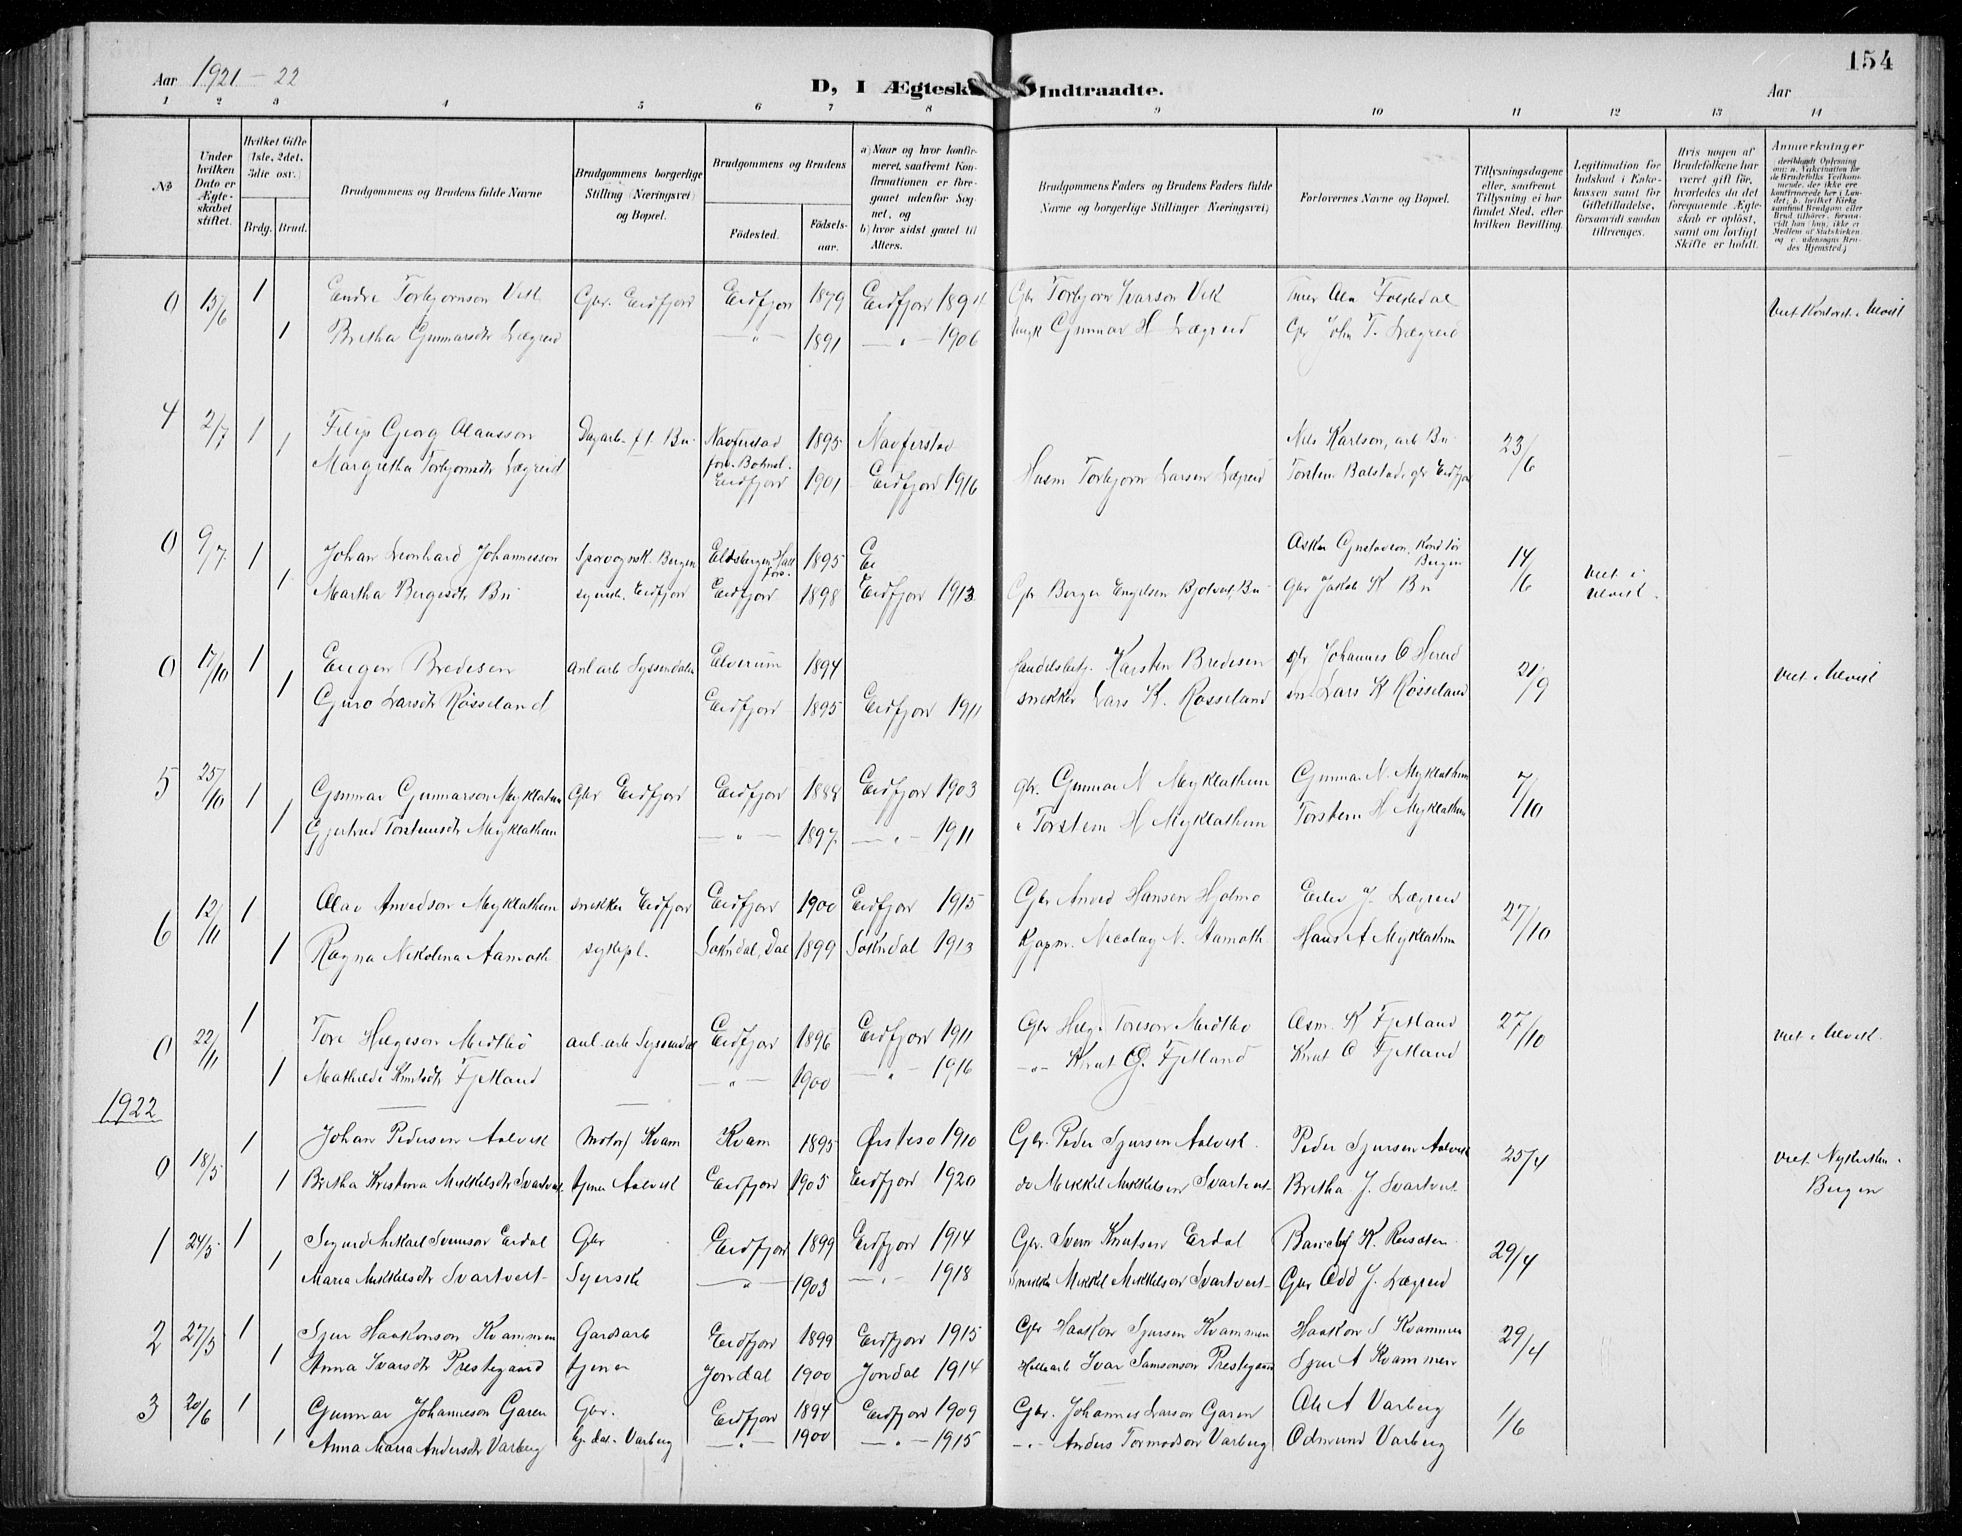 154
Aar 1921-22
D, I Ægtesk Indtraadte.
Aar
1 2 3 4 5 6 7 8 9 10 11 12 13 14
No
Under hvilken Dato er Ægteskabet stiftet.
Hvilket Gifte (1ste, 2det, 3die osv.)
Brdg. Brud.
Brudgommens og Brudens fulde Navne
Brudgommens borgerlige Stilling (Næringsvei) og Bopæl.
Brudgommens og Brudens
Fødested.
Fødselsaar.
a) Naar og hvor konfirmeret, saafremt Konfirmationen er foregaaet udenfor Sognet, og
b) hvor sidst gaaet til Alters.
Brudgommens Faders og Brudens Faders fulde Navne og borgerlige Stillinger (Næringsvei)
Forlovernes Navne og Bopæl.
Tillysningsdagene eller, saafremt Tillysning ei har fundet Sted, efter hvilken Bevilling.
Legitimation for Indskud i Enkekassen samt for Giftetilladelse, forsaavidt saadan tiltrænges.
Hvis nogen af Brudefolkene har været gift før, hvorledes da det foregaaende Ægteskab er opløst, samt om lovligt Skifte er holdt.
Anmerkninger
0 15/6 1 Endre Torbjørnson Vik Gbr. Eidfjord Eidfjor 1879 Eidfjor 1894 Gbr Torbjørn Ivarson Vik
1 Britha Gunnarsdtr Lægreid — " — 1891 — " — 1906 Gunnar H Lægreid Gbr John T. Lægreid
4 2/7 1 Filip Georg Olausson Dagarb. f.t. Bu Navferstad 1895 Navferstad Nils Karlson, arb Bu 23/6
forv. Bohusl.
1 Margretha Torbjørnsdtr Lægreid Eidfjord 1901 Eidfjor 1916 Husm Torbjørn Larsen Lægreid
0 9/7 1 Johan Leonhard Johannesson Sporvognsk. Bergen 1895 Ei Asker Gustavson, Konduktør 14/6
Bergen
1 Martha Bergesdtr Bu Eidfjord Eidfjor 1898 Eidfjor 1913 Gbr Berger Engelsen Bjotveit, Bu Gbr Jakob K Bu
Viet i Ulvik.
0 17/10 1 Eugen Bredesen anl arb Syssendalen Elverum 1894 Karsten Bredesen gbr Johannes O Hereid 21/9 viet i Ulvik
1 Guro Larsdtr Røsseland Eidfjor 1895 Eidfjor 1911 snekker Lars K. Røsseland sn Lars K Røsseland
5 25/10 1 Gunnar Gunnarson Myklathun Gbr Eidfjor Eidfjor 1888 Eidfjor 1903 gbr. Gunnar N Myklathun Gunnar N. Myklathun 7/10
1 Gjertrud Torsteinsdtr Myklathun — " — 1897 — " — 1911 " Torstein H Myklathun Torstein H Myklathun
6 12/11 1 Olav Anvedson Myklathun snekker Eidfjor Eidfjor 1900 Eidfjor 1915 Gbr Anved Hansen Holmo Eilev J. Lægreid 27/10
1 Ragna Nikolina Aamoth sykepl. Sokndal, Dal 1899 Sokndal 1913 Kjøpm. Nicolay N. Aamoth Hans A Myklathun
0 22/11 1 Tore Helgeson Midtbø anl. arb Syssendal Eidfjor 1896 Eidfjor 1911 Gbr Helge Toreson Midtbø Asm. K Fjetland 27/10 viet i Ulvik.
1 Mathilde Knutsdtr Fjetland — " — 1900 — " — 1916 — " — Knut O. Fjetland Knut O Fjetland
1922
0 18/5 1 Johan Pedersen Aalvik Motorf Kvam Kvam 1895 Østeso 1910 Gbr. Peder Sjursen Aalvik. Peder Sjursen Aalvik 25/4 viet. Nykirken.
Bergen
1 Britha Kristina Mikkelsdtr Svartveit tjener Aalvik Eidfjor 1905 Eidfjor 1920 do Mikkel Mikkelsen Svartveit Britha J. Svartveit
1 24/5 1 Sigurd Mikael Sveinson Erdal Gbr Eidfjor 1899 Eidfjor 1914 Gbr. Svein Knutsen Erdal K. Reisæter 29/4
1 Maria Mikkelsdtr Svartveit Syerske — " — 1903 — " — 1918 Snekker Mikkel Mikkelson Svartveit Gbr Odd J. Lægreid
2 27/5 1 Sjur Haakonson Kvammen Gardsarb Eidfjor 1899 Eidfjor 1915 Gbr Haakon Sjursen Kvammen Haakon S Kvammen 29/4
1 Anna Ivarsdtr Prestegaard tjener Jondal 1900 Jondal 1914 Ivar Samsonson Prestegaard Sjur A Kvammen
3 20/6 1 Gunnar Johanneson Garen Gbr. Eidfjor 1894 Eidfjor 1909 Gbr. Johannes Larson Garen Ole A Varberg 1/6
1 Anna Maria Andersdtr Varberg Varberg — " — 1900 — " — 1915 — " — Anders Tormodson Varberg Odmund Varberg